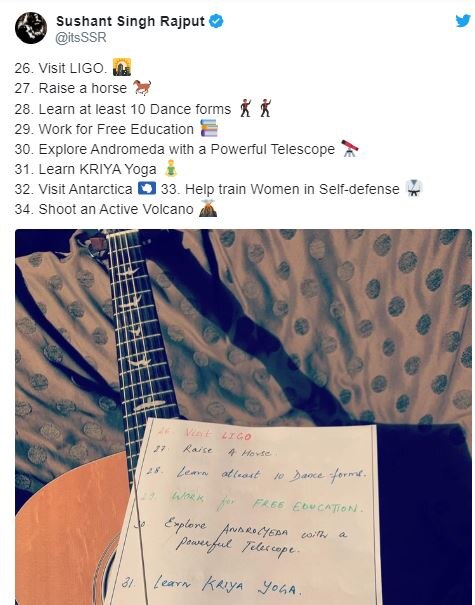 Sushant Singh Rajput
@itsSSR
26. Visit LIGO.
27. Raise a horse
28. Learn at least 10 Dance forms
29. Work for Free Education
30. Explore Andromeda with a Powerful Telescope
31. Learn KRIYA Yoga
32. Visit Antarctica 33. Help train Women in Self-defense
34. Shoot an Active Volcano
26. Visit LIGO
27. Raise A Horse.
28. Learn atleast 10 Dance forms.
29. WORK for FREE EDUCATION.
30 Explore ANDROMEDA with a
Powerful Telescope.
31. Learn KRIYA YOGA.